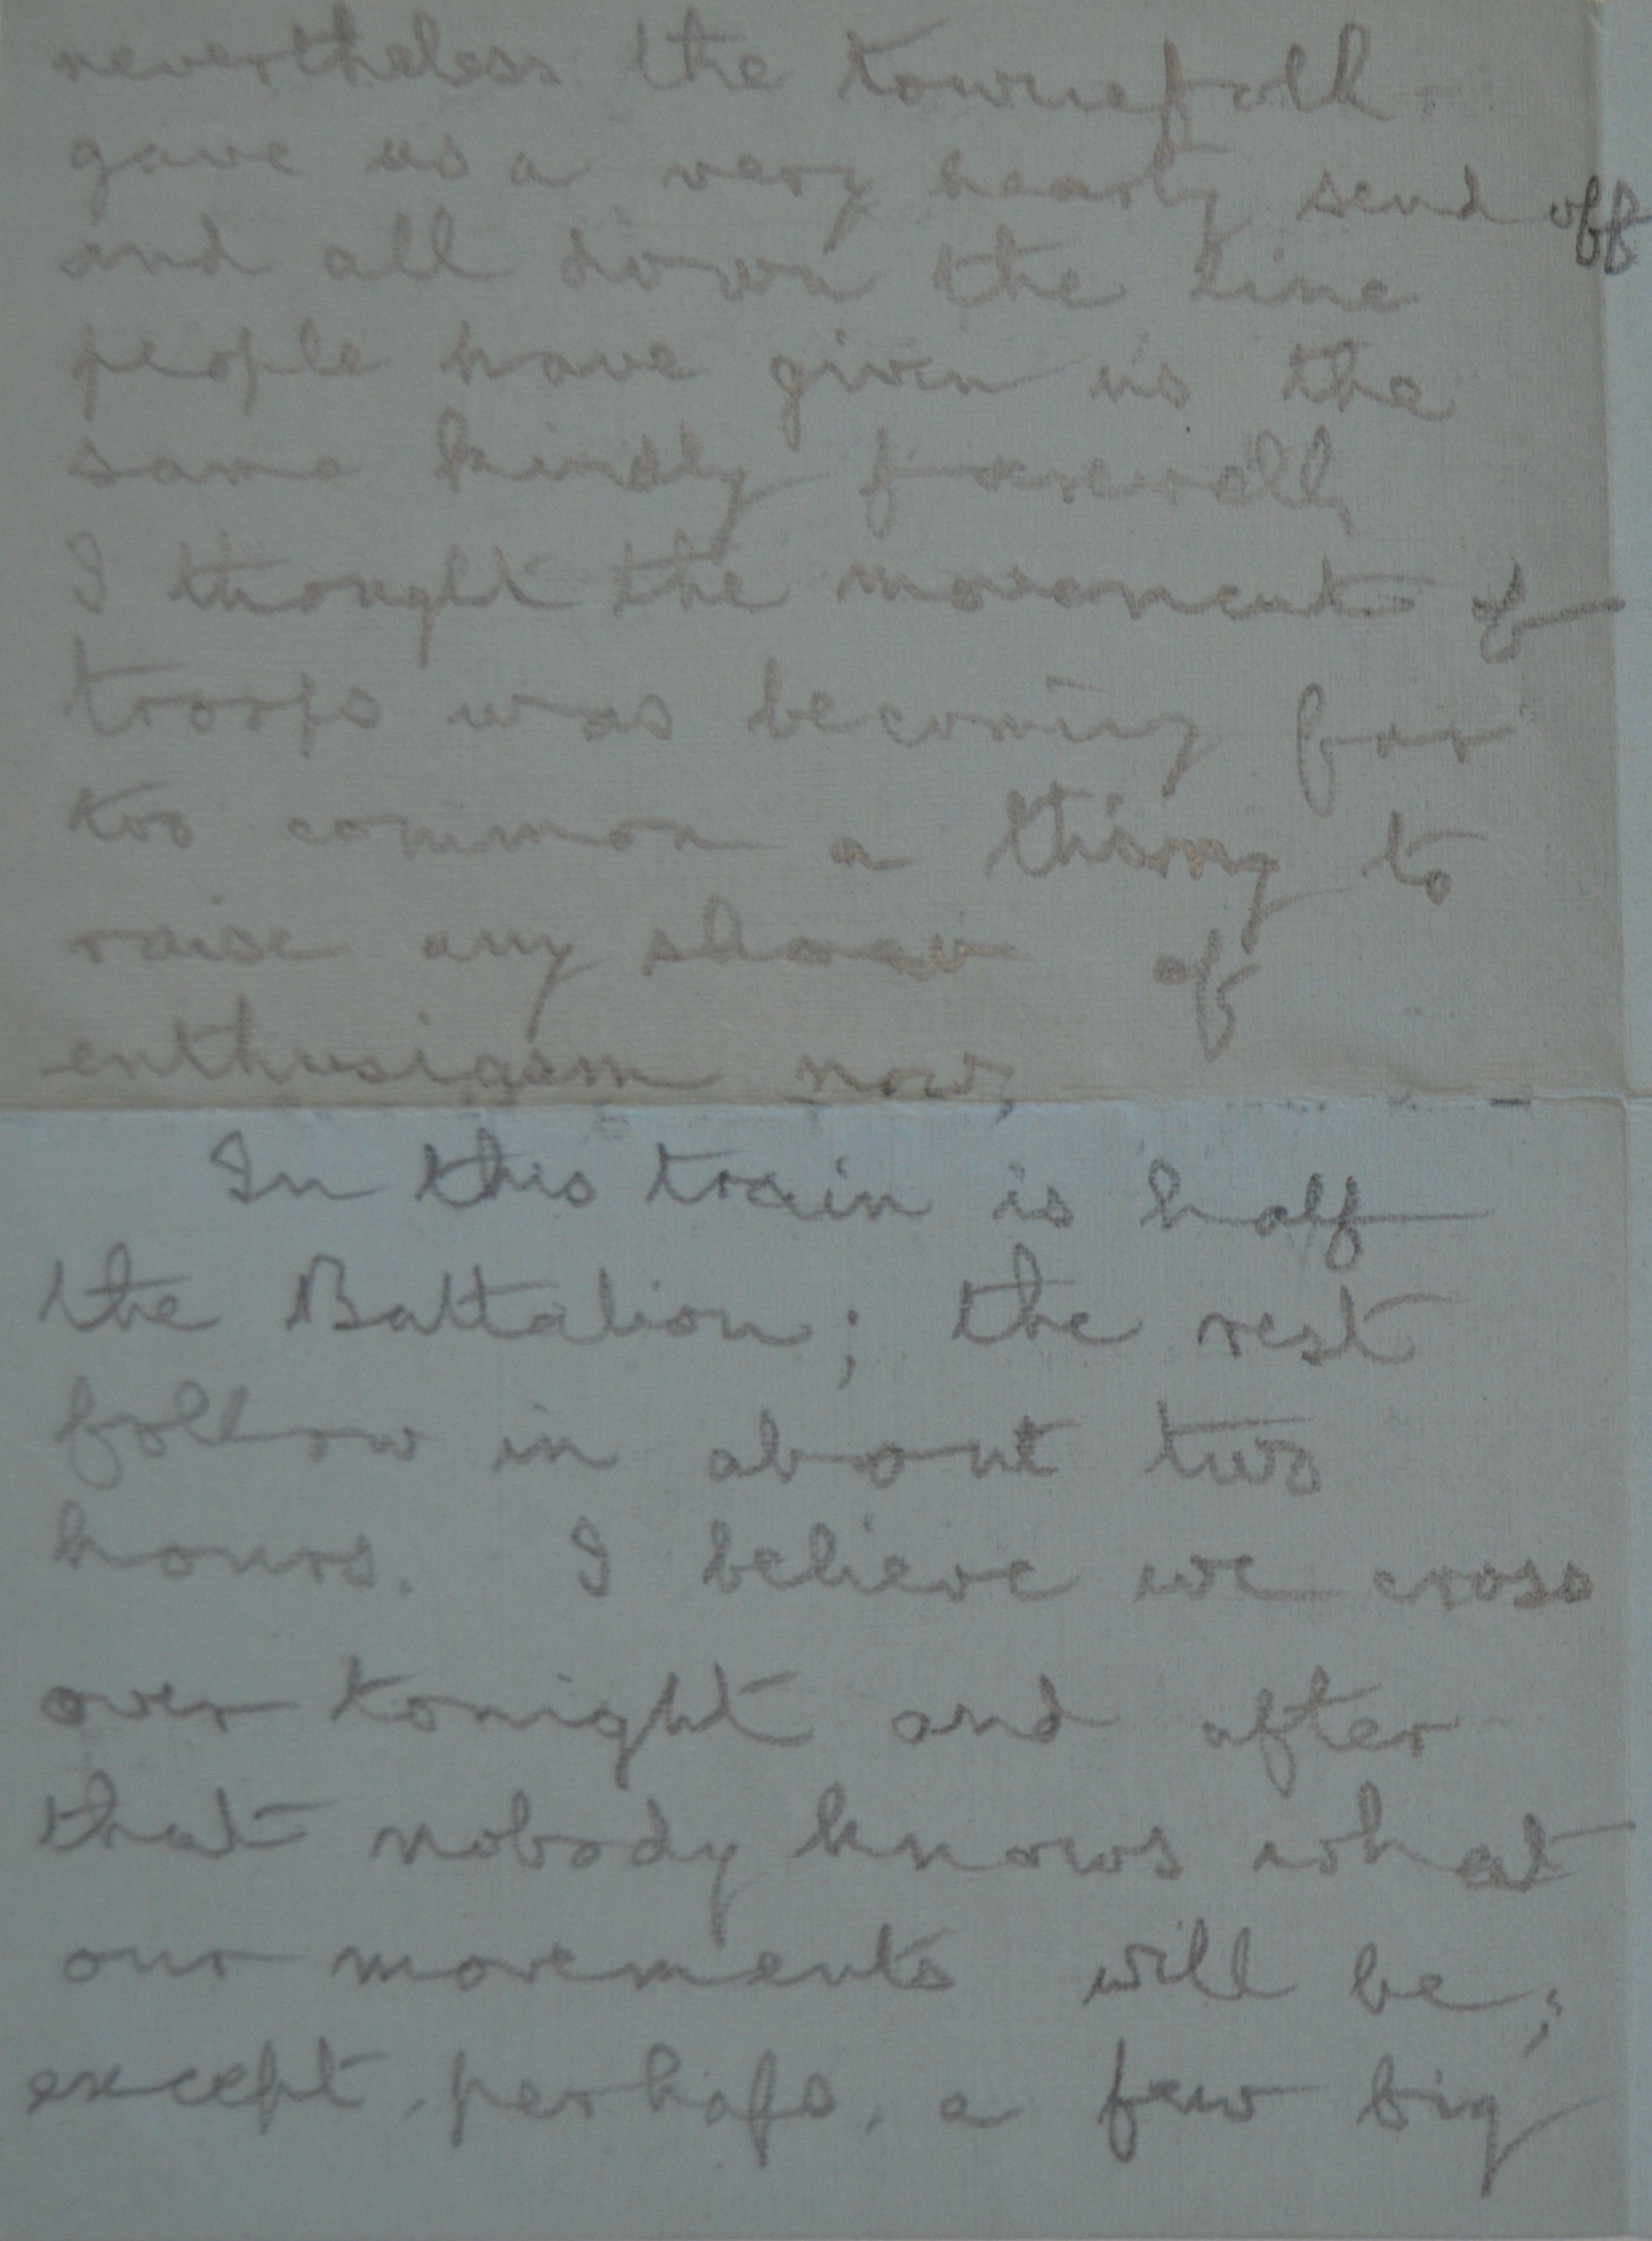 nevertheless the townsfolk
gave us a very hearty send off
and all down the line
people have given us the
same kindly farewell,
I thought the movement of
troops was becoming far
too common a thing to
raise any show of
enthusiasm now,
In this train is half
the Battalion; the rest
follow in about two
hours. I believe we cross
over tonight and after
that nobody knows what
our movements will be;
except, perhaps, a few big